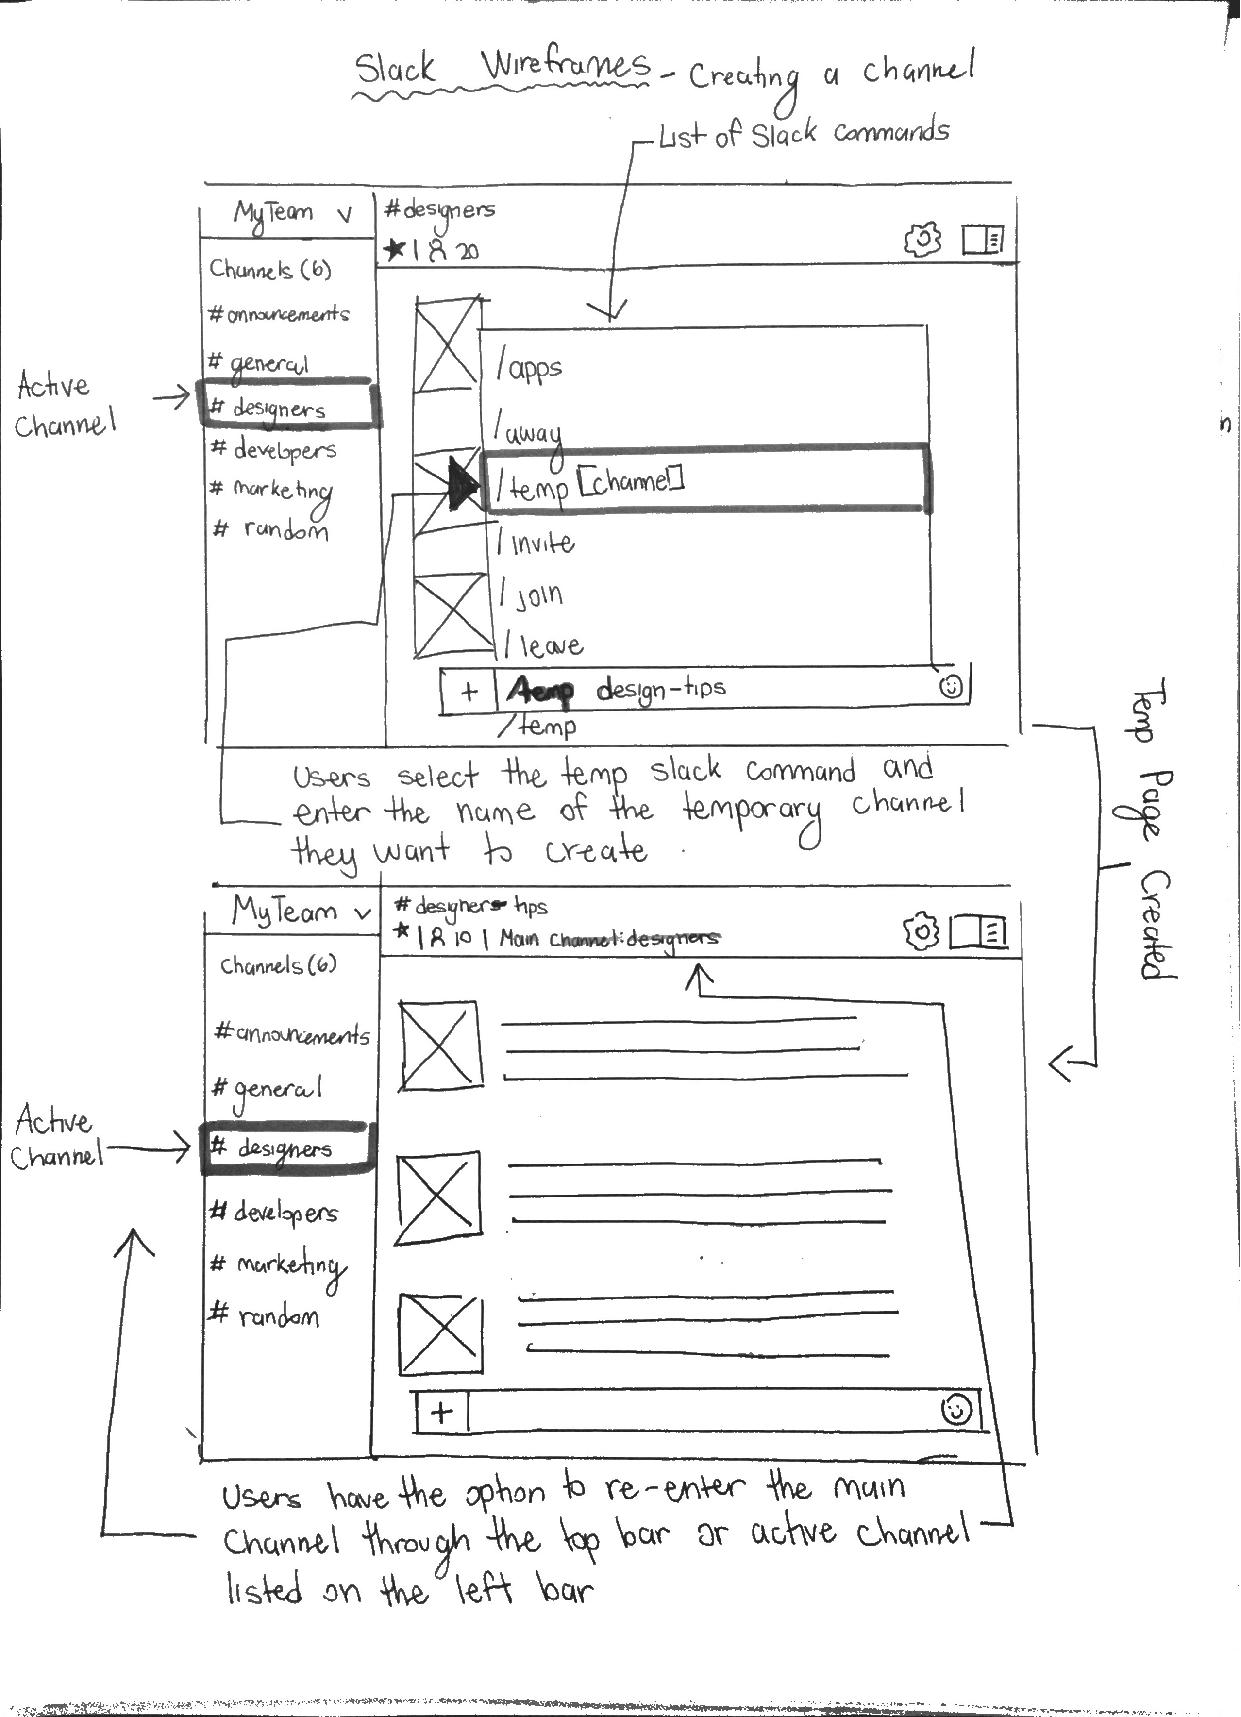 Slack Wireframes - Creating a channel
List of Slack commands
MyTeam v
#designers
20
Channels (6)
#announcements
# general
# designers
# developers
# marketing
# random
Active
Channel
/apps
/away
/temp [channel]
/invite
/join
/leave
+ /temp design-tips
/temp
Users select the temp slack command and
enter the name of the temporary channel
they want to create.
Temp Page Created
MyTeam v
# designers tips
10 | Main channel: designers
Channels (6)
#announcements
# general
# designers
# developers
# marketing
# random
Active
Channel
+
Users have the option to re-enter the main
Channel through the top bar or active channel
listed on the left bar
n